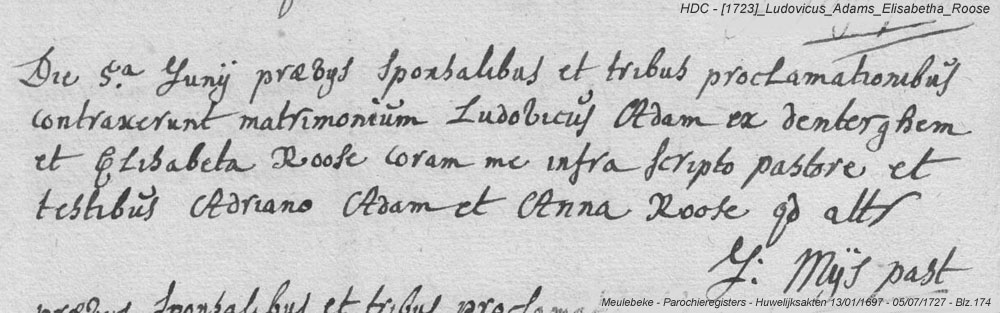 HDC - [1723]_Ludovicus_Adams_Elisabetha_Roose
Die 5.a Junij prævys sponsalibus et tribus proclamationibus
contraxerunt matrimonium Ludovicus Adam ex denterghem
et Elisabeta Roose coram me infra scripto pastore et
testibus Adriano Adam et Anna Roose qd attr
J: Mijs past
prævys sponsalibus et tribus proclama
Meulebeke - Parochieregisters - Huwelijksakten 13/01/1697 - 05/07/1727 - Blz.174